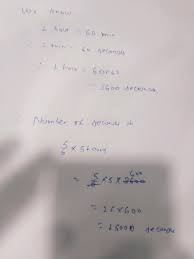 We know
1 hour = 60 min
1 min = 60 seconds
∴ 1 hour = 60×60
= 3600 seconds
Number of seconds in
5/6 × 5 hours
= 5/6 × 5 × 3600 600
= 25 × 600
= 15000 seconds